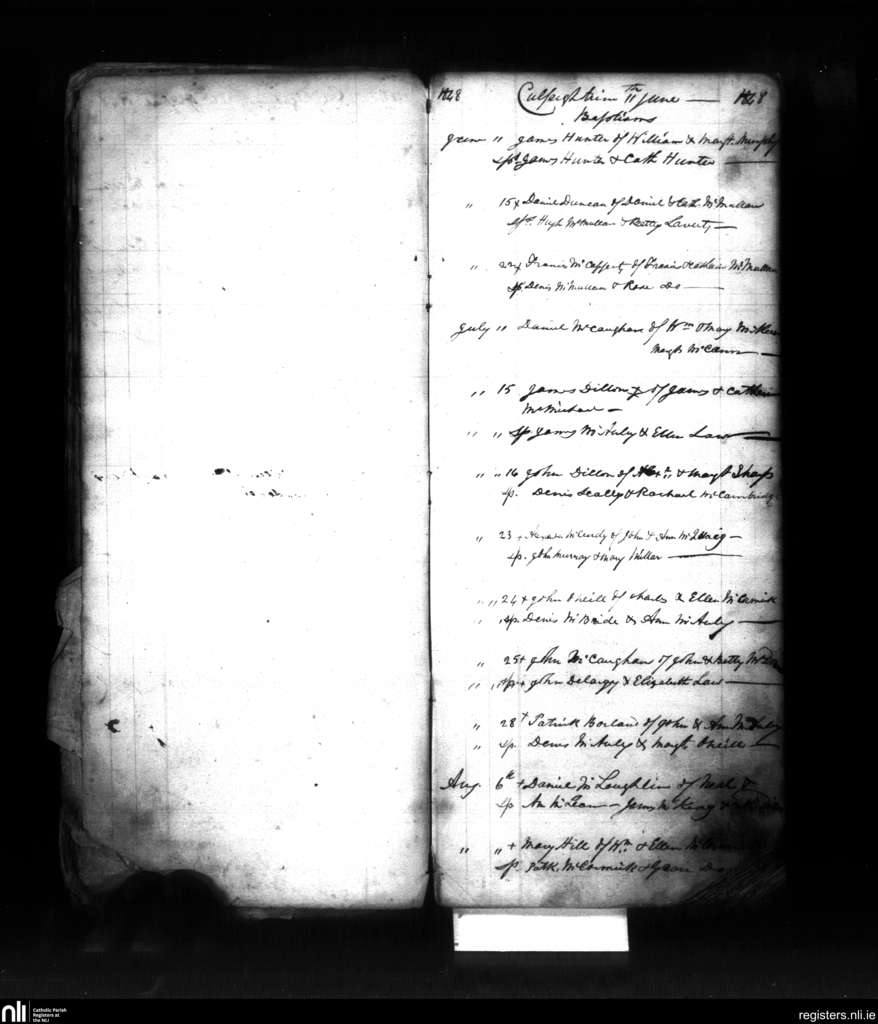 1848 Culfeightrin 11th June — 1848
Baptisms
June " James Hunter of William & Margt. Murphy
Sps James Hunter & Cath Hunter —
" 15 x Daniel Duncan of Daniel & Cath. McMullan
Sps. Hugh McMullan & Betty Laverty —
" 22 x Francis McCafferty of Francis & McMullan
Sp Denis McMullan & Rose Do —
July " Daniel McCaughan of Wm & Mary
Margt McCann —
" 15 James Dillon x of James & Catherine
McMichael —
" " Sp James McAuly & Ellen Law —
" " 16 John Dillon of & Margt Sharp
Sp. Denis Scally & Rachael McCambridge
" 23 + McCurdy of John & Ann
Sp. John Murray & Mary Millar —
" " 24 + John O'Neill of Charls & Ellen McCormick
" Sp. Denis McBride & Ann McAuly —
" 25 + John McCaughan of John & Betty
" Sp + John Delargy & Elizabeth Law —
" 28 + Patrick Borland of John & Ann McAuly
" Sp. Denis McAuly & Margt. O'Neill —
Aug. 6th + Daniel McLoughlin of Neal &
Sp Ann McLean — James &
" " + Mary Hill of Wm. & Ellen McCormick
Sp. Patk. McCormick & Do
nli Catholic Parish
Registers at
the NLI
registers.nli.ie